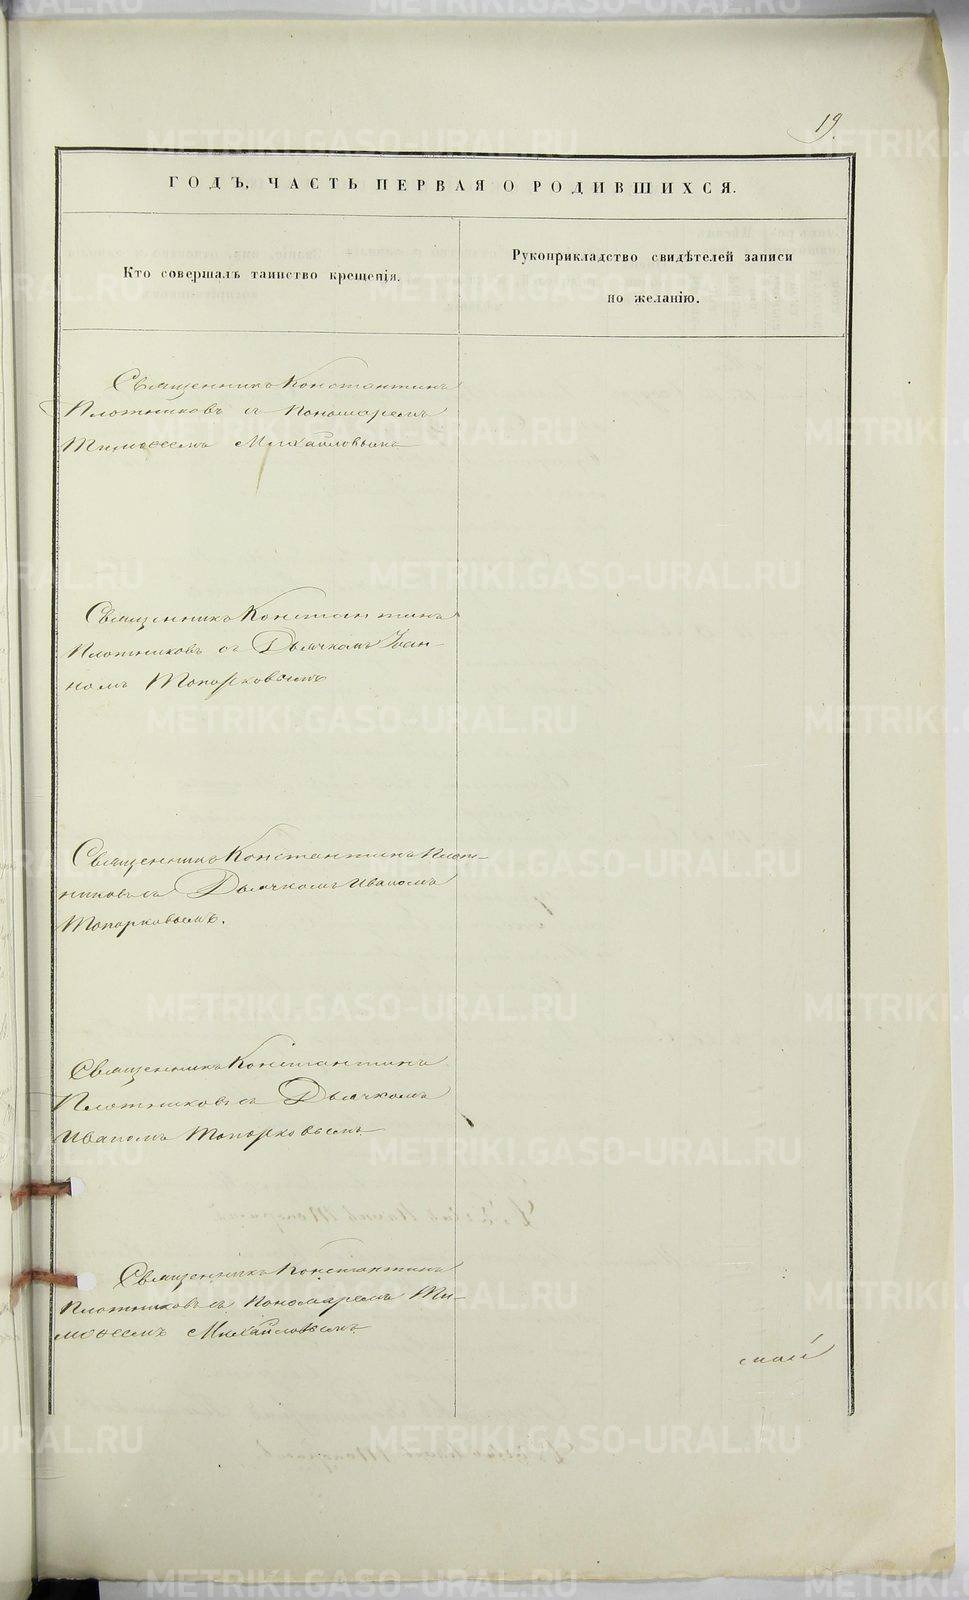 19.
ГОДЪ, ЧАСТЬ ПЕРВАЯ О РОДИВШИХСЯ.
Кто совершалъ таинство крещенія.
Рукоприкладство свидѣтелей записи
по желанію.
Священникъ Константинъ
Плотниковъ съ Пономаремъ
Тимоѳеемъ Михайловымъ
Священникъ Константинъ
Плотниковъ съ Дьячкомъ Іоан-
номъ Топорковымъ
Священникъ Константинъ Плот-
никовъ съ Дьячкомъ Иваномъ
Топорковымъ.
Священникъ Константинъ
Плотниковъ съ Дьячкомъ
Иваномъ Топорковымъ
Священникъ Константинъ
Плотниковъ съ Пономаремъ Ти-
моѳеемъ Михайловымъ
METRIKI.GASO-URAL.RU